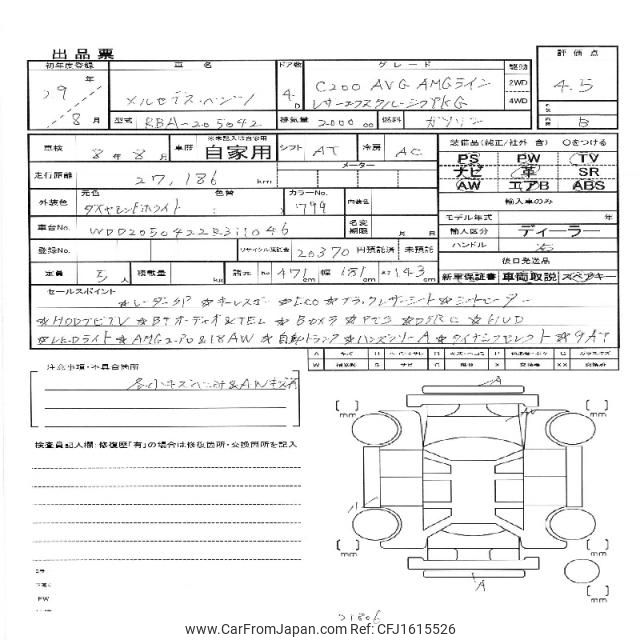 出品票
初年度登録 車名 ドア数 グレード 駆動 評価点
29年 8月
メルセデス・ベンツ
4D
C200 AVG AMGライン
レザーエクスクルーシブPKG
2WD
4WD
4.5
B
型式 RBA-205042 排気量 2000 cc 燃料 ガソリン
車検 8年8月 車歴 ※未記入は自家用 自家用 シフト AT 冷房 AC
走行距離 27,186 km メーター
外装色 元色 ダイヤモンドホワイト 色替 カラーNo. 799 内装色
車台No. WDD2050422R311046 名変期限 月 日
登録No. リサイクル預託金 20370 円預託済 未預託
定員 5人 積載量 kg 諸元 長さ 471 cm 幅 181 高さ 143 cm
装備品(純正/社外 含) ○をつける
PS PW TV
ナビ 革 SR
AW エアB ABS
輸入車のみ
モデル年式 年
輸入区分 ディーラー
ハンドル 右
後日発送品
新車保証書 車両取説 スペアキー
セールスポイント
☆レーダーSP ☆キーレスゴー ☆ECO ☆ブラックレザーシート ☆シートヒーター
☆HDDナビTV ☆BTオーディオ&TEL ☆Bカメラ ☆PTS ☆DSRC ☆HUD
☆LEDライト ☆AMGエアロ&18AW ☆自動トランク ☆ハンズフリーA ☆ダイナミックセレクト ☆9AT
注意事項・不具合箇所
各小キズヘコミ&AWキズ有
検査員記入欄:修復歴「有」の場合は修復箇所・交換箇所を記入
A
mm
mm
mm
mm
mm
A
21806
www.CarFromJapan.com Ref: CFJ1615526